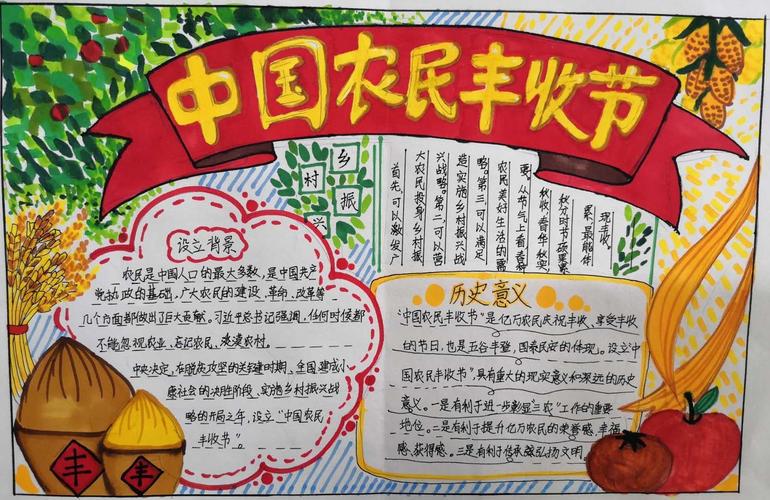 中国农民丰收节
乡
村
振
兴
首先,可以激发广
大农民投身乡村振
兴战略。第二,可以营
造实施乡村振兴战
略。第三,可以满足
农民美好生活的需
要。从节气上看,春种
秋收,春华秋实,
秋分时节硕果累
累,最能体
现丰收。
设立背景
农民是中国人口的最大多数,是中国共产
党执政的基础,广大农民的建设、革命、改革等
几个方面都做出了巨大贡献。习近平总书记强调,任何时候都
不能忽视农业、忘记农民、淡漠农村。
中央决定,在脱贫攻坚的关键时期、全国建成小
康社会的决胜阶段、实施乡村振兴战
略的开局之年,设立“中国农民
丰收节”。
历史意义
“中国农民丰收节”是亿万农民庆祝丰收、享受丰收
的节日,也是五谷丰登,国泰民安的体现。设立“中
国农民丰收节”,具有重大的现实意义和深远的历史
意义。一是有利于进一步彰显“三农”工作的重要
地位。二是有利于提升亿万农民的荣誉感,幸福
感、获得感。三是有利于传承弘扬文明
丰
丰